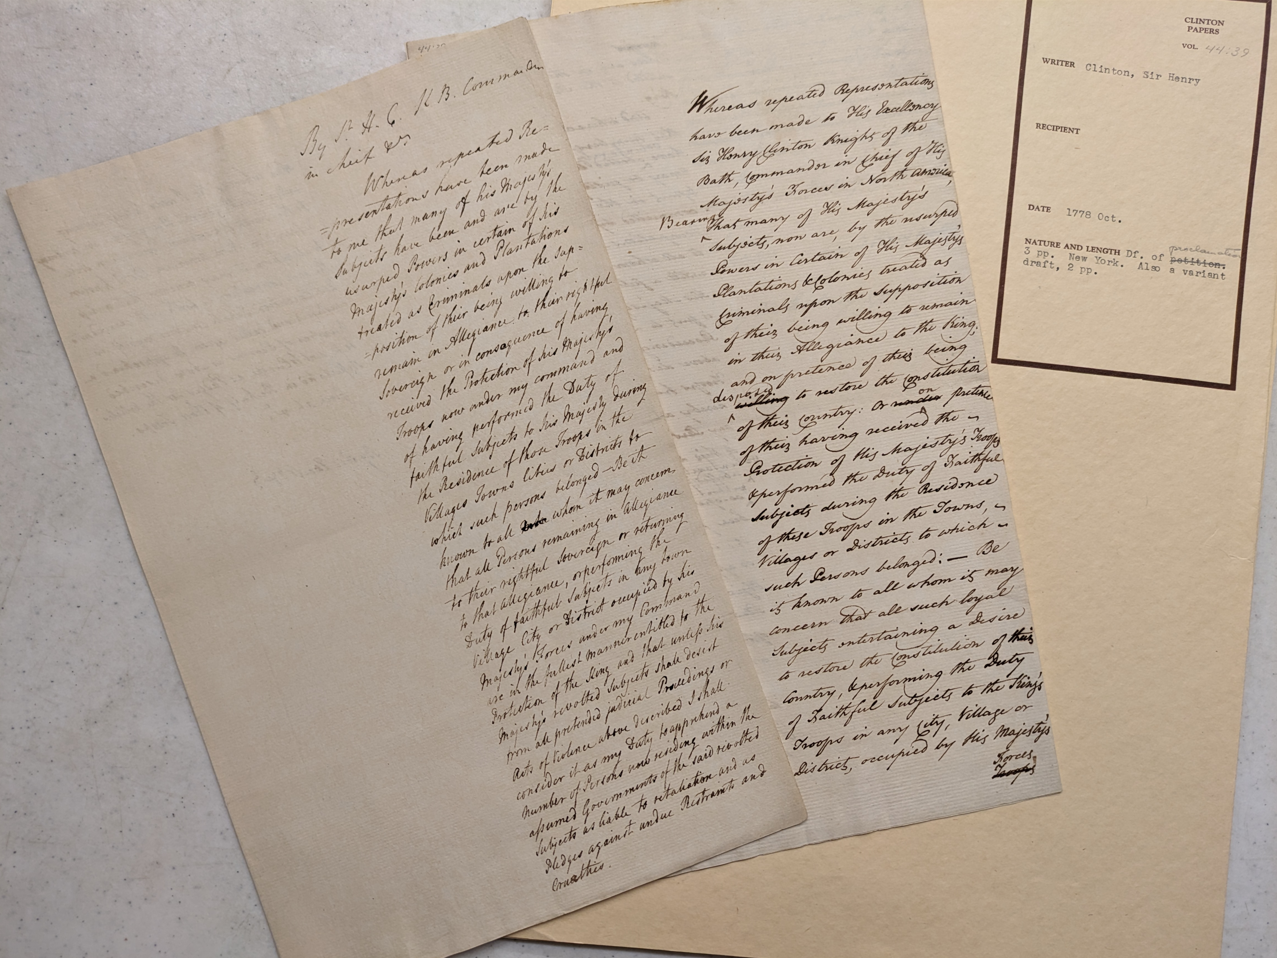 By Sr. H. C. K. B. Commander
in Chief &c
Whereas repeated Re=
=presentations have been made
to me that many of his Majesty's
Subjects have been and are by the
usurped Powers in certain of his
Majesty's Colonies and Plantations
treated as Criminals upon the Sup=
=position of their being willing to
remain in Allegiance to their rightful
Sovereign or in consequence of having
received the Protection of his Majesty's
Troops now under my command and
of having performed the Duty of
faithful Subjects to his Majesty during
the Residence of those Troops in the
Villages Towns Cities or Districts to
which such persons belonged – Be it
known to all whom it may concern
that all Persons remaining in Allegiance
to their rightful Sovereign or returning
to that Allegiance, or performing the
Duty of faithful Subjects in any town
Village City or District occupied by his
Majesty's Forces under my Command
are in the fullest manner entitled to the
Protection of the King and that unless his
Majesty's revolted Subjects shall desist
from all pretended judicial Proceedings or
Acts of Violence above described I shall
consider it as my Duty to apprehend a
number of Persons now residing within the
assumed Governments of the said revolted
Subjects as liable to retaliation and as
Pledges against undue Restraints and
Cruelties.
44:
Whereas repeated Representations
have been made to His Excellency
Sir Henry Clinton Knight of the
Bath, Commander in Chief of His
Majesty's Forces in North America,
Bearing
That many of His Majesty's
Subjects, now are, by the usurped
Powers in Certain of His Majesty's
Plantations & Colonies treated as
Criminals upon the Supposition
of their being willing to remain
in their Allegiance to the King,
and on pretence of their being
disposed
willing to restore the Constitution
on
of their Country: Or under pretence
of their having received the –
Protection of His Majesty's Troops
& performed the Duty of Faithful
Subjects during the Residence
of these Troops in the Towns, –
Villages or Districts to which –
such Persons belonged: — Be
it known to all whom it may
concern that all such loyal
Subjects entertaining a desire
to restore the Constitution of their
Country, & performing the Duty
of Faithful Subjects to the King's
Troops in any City, Village or
District, occupied by His Majesty's
Forces
Troops
CLINTON
PAPERS
VOL. 44:39
WRITER Clinton, Sir Henry
RECIPIENT
DATE 1778 Oct.
proclamation
NATURE AND LENGTH Df. of petition.
3 pp. New York. Also a variant
draft, 2 pp.